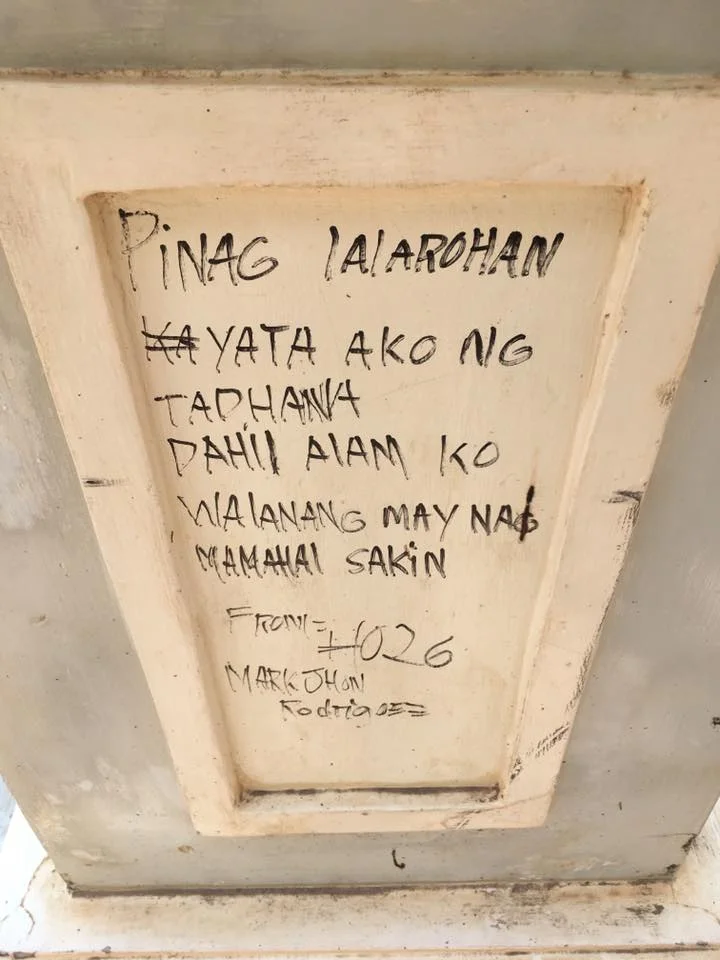 PiNAG lAlAROHAN
KAYATA AKO NG
TADHANA
DAHIl AlAM KO
WAlANANG MAY NAG
MAMAHAl SAKiN
FROM=
#026
MARKJHON
Rodrigoez